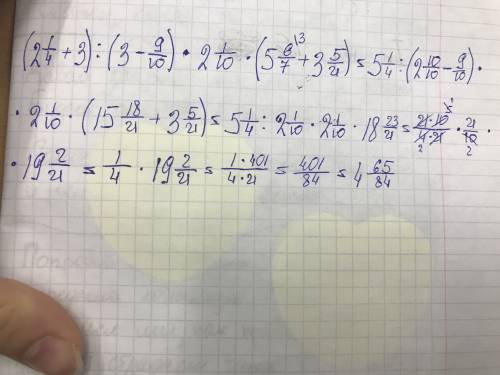 (2 1/4 + 3) : (3 - 9/10) · 2 1/10 · (5 6/7 \3 + 3 5/21) = 5 1/4 : (2 10/10 - 9/10) ·
· 2 1/10 · (15 18/21 + 3 5/21) = 5 1/4 : 2 1/10 · 2 1/10 · 18 23/21 = 21·10 5/4·21 2 · 21/10 2 ·
· 19 2/21 = 1/4 · 19 2/21 = 1·401/4·21 = 401/84 = 4 65/84